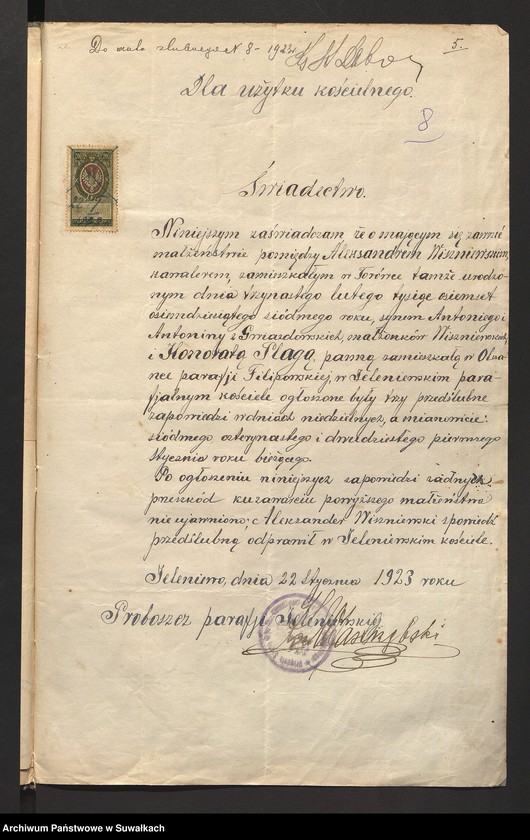 Do aktu slubnego N 8 - 1923r
5.
Dla użytku kościelnego.
8
Świadectwo.
Niniejszym zaświadczam że o mającym się zawrzeć
małżeństwie pomiędzy Aleksandrem Wiszniewskim,
kawalerem, zamieszkałym w Torówce tamże urodzo-
nym dnia trzynastego lutego tysiąc osiemset
osiemdziesiątego siódmego roku, synem Antoniego i
Antoniny z Gwiazdowskich, małżonków Wiszniewskich,
i Honoratą Plagą, panną zamieszkałą w
parafji Filipowskiej, w Jeleniewskim para-
fjalnym kościele ogłoszone były trzy przedślubne
zapowiedzi w dniach niedzielnych, a mianowicie:
siódmego czternastego i dwudziestego pierwszego
stycznia roku bieżącego.
Po ogłoszeniu niniejszych zapowiedzi żadnych
przeszkód ku zawarciu powyższego małżeństwa
nie ujawniono; Aleksander Wiszniewski spowiedź
przedślubną odprawił w Jeleniewskim kościele.
Jeleniewo, dnia 22 stycznia 1923 roku
Proboszcz parafji Jeleniewskiej
Archiwum Państwowe w Suwałkach